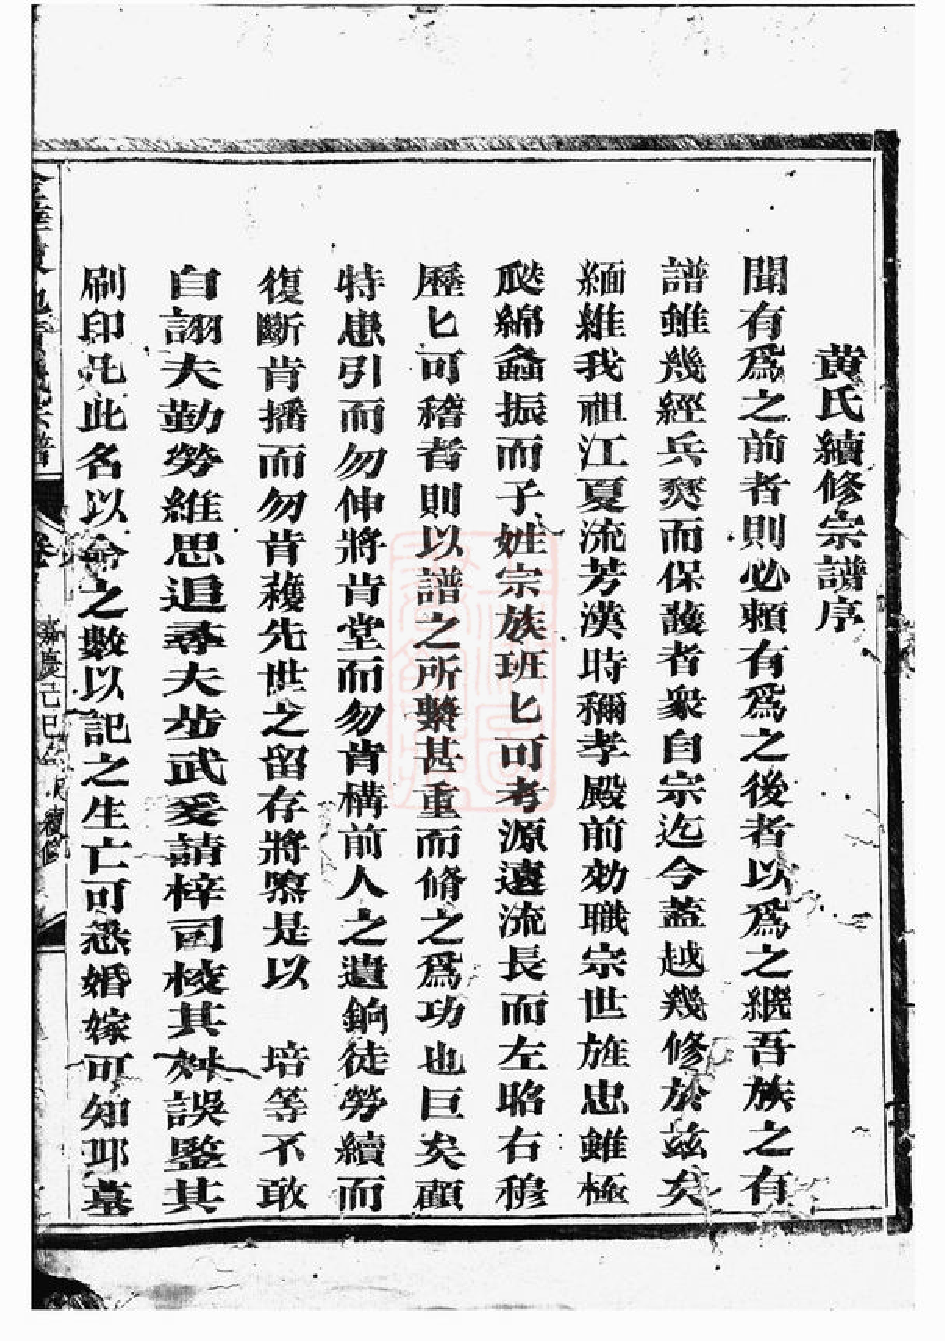 黃氏續修宗譜序
聞有爲之前者則必頼有爲之後者以爲之繼吾族之有
譜雖幾經兵燹而保護者衆自宗迄今蓋越幾修於茲矣
緬維我祖江夏流芳漢時稱孝殿前効職宗世旌忠雖極
瓞綿螽振而子姓宗族班匕可考源遠流長而左昭右穆
歷匕可稽者則以譜之所繫甚重而脩之爲功也巨矣顧
特患引而勿伸將肯堂而勿肯構前人之遺餉徒勞續而
復斷肯播而勿肯穫先世之留存將隳是以 培等不敢
自詡夫勤勞維思追尋夫步武爰請梓司校其舛誤鑒其
刷印凡此名以命之數以記之生亡可悉婚嫁可知邱墓
宗譜
卷
嘉慶己巳年 續修